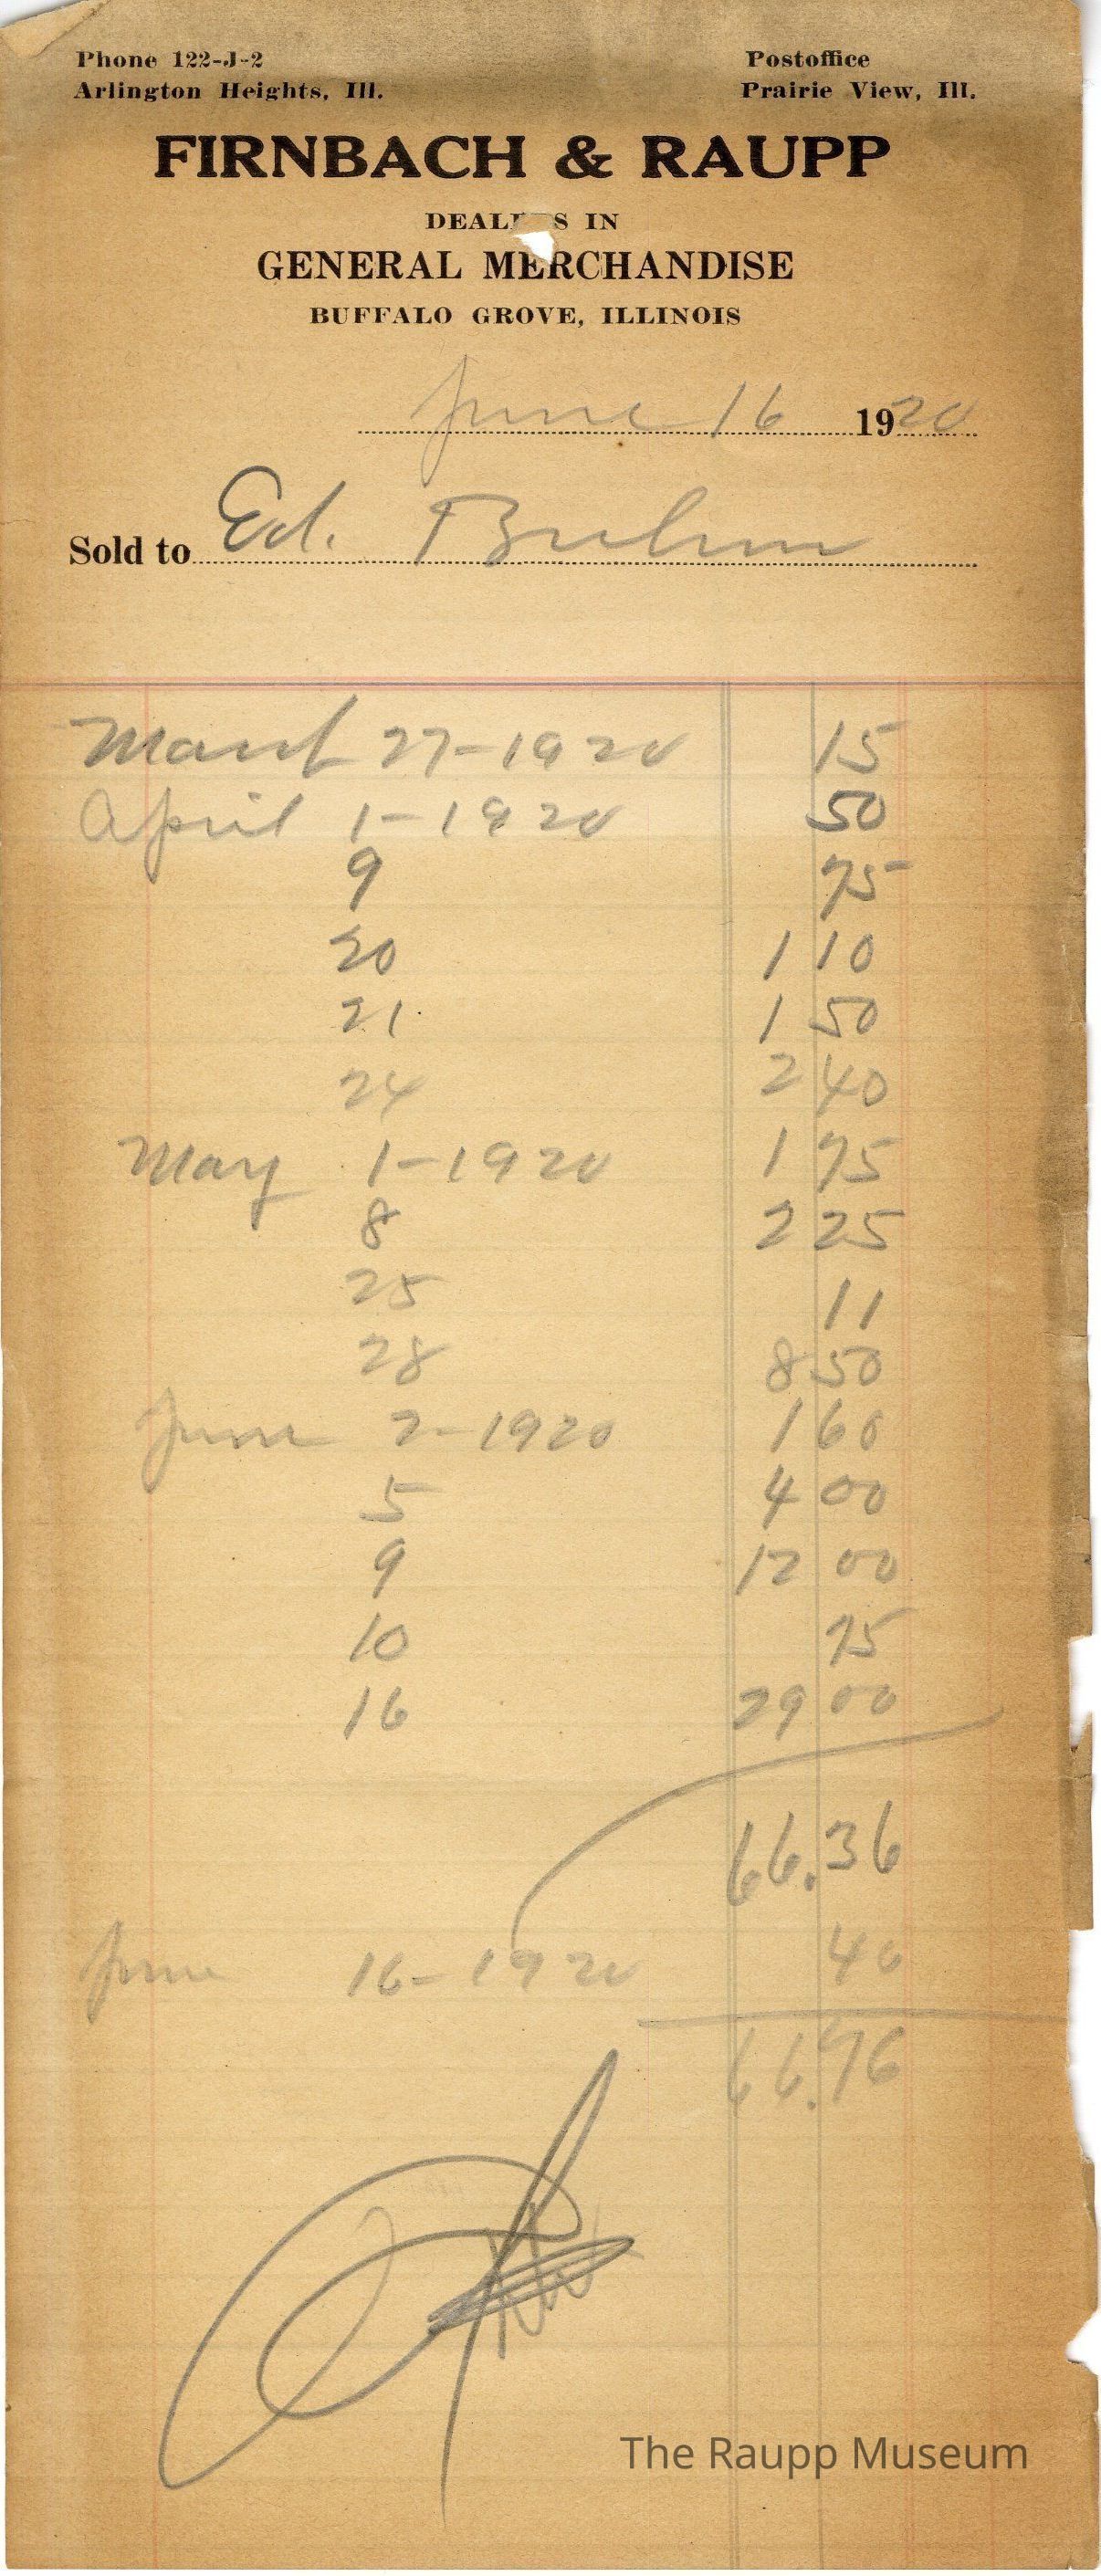 Phone 122-J-2
Arlington Heights, Ill.
Postoffice
Prairie View, Ill.
FIRNBACH & RAUPP
DEAL S IN
GENERAL MERCHANDISE
BUFFALO GROVE, ILLINOIS
June 16 1920
Sold to Ed.
March 27-1920 15
April 1-1920 50
9 75
20 1 10
21 1 50
24 2 40
May 1-1920 1 75
8 2 25
25 11
28 8 50
June 2-1920 1 60
5 4 00
9 12 00
10 75
16 29 00
66.36
June 16-1920 40
66.76
The Raupp Museum